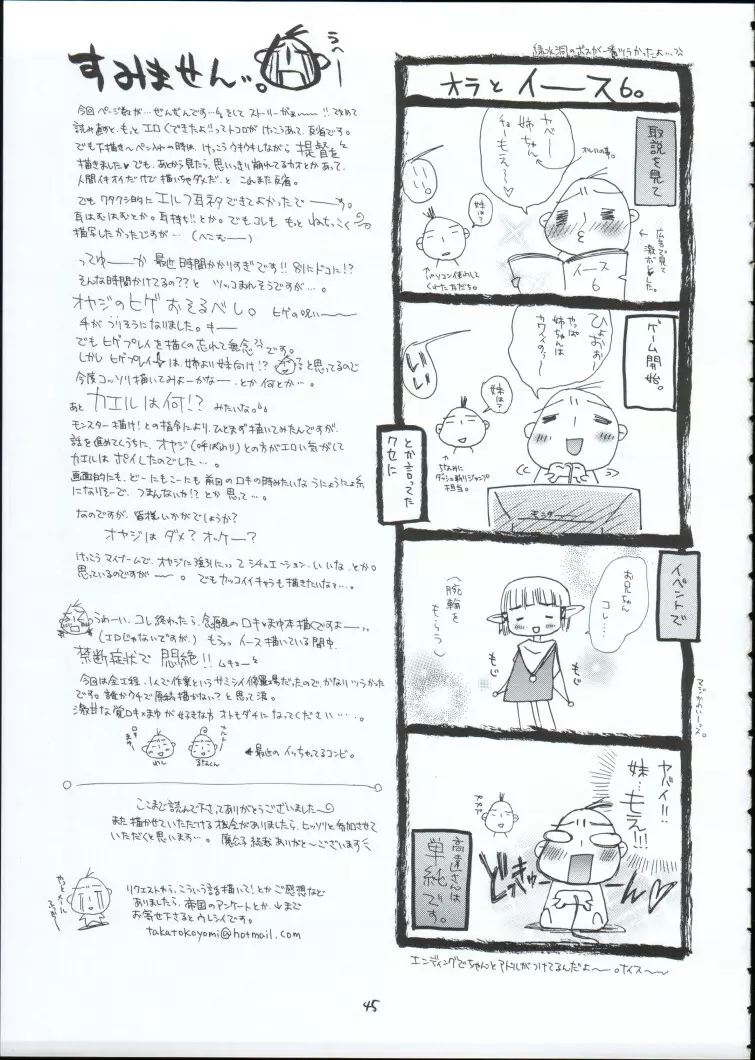 すみません…。
うへー
今回ページ数が…ぜんぜんです…そしてストーリーがぁーー!!改めて
読み直すと、もっとエロくできたよ!!ってトコロがけっこうあって、反省です。
でも下描き〜ペン入れの時は、けっこうウキウキしながら提督を
描きました♥でも、あとから見たら、思いっきり崩れてるカオとかあって、
人間イキオイだけで描いちゃダメだ。と これまた反省。
でもワタクシ的にエルフ耳ネタできてよかったでーーす。
耳はむはむとか。耳持ち!!とか。でもコレも もっと ねちっこく
描写したかったですが…(へこむー)
ってゆーか最近時間かかりすぎです!!別にドコに!?
そんな時間かけてるの??と ツッコまれそうですが…。
オヤジのヒゲおそるべし。ヒゲの呪いーー
手がつりそうになりました。キー
でもヒゲプレイを描くの忘れて無念です。
しかしヒゲプレイは、姉より妹向け!?と思ってるので
今度コッソリ描いてみよーかなー、とか何とか…。
あと カエルは何!? みたいな。
モンスター描け!との指令により、ひとまず描いてみたんですが、
話を進めてくうちに、オヤジ(呼ばわり)との方がエロい気がして
カエルはポイしたのでした…。
画面的にも、どーにもこーにも前回のロキの時みたいなうにょうにょ系
になりそーで、つまんないか!?とか思って…。
なのですが、皆様いかがでしょうか?
オヤジはダメ?オッケー?
けっこうマイブームで、オヤジに強引にっってシチュエーション、いいな、とか。
思っているのですがーー。でもカッコイイキャラも描きたいなァ…。
うめーい、コレ終わったら、念願のロキ×まゆ本描くですよー…
(エロじゃないですが、)もうっ、イース描いている間中、
禁断症状で悶絶!!ムキョー
今回は全工程、1人で作業というサミシイ修羅場だったので、かなりツラかった
です。誰かウチで原稿描かない?と思って涙。
激甘な覚ロキ×まゆが好きな方、オトモダチになってください…。
←最近のイッちゃてるコンビ。
ここまで読んで下さってありがとうございました〜
また描かせていただける機会がありましたら、ヒッソリと参加させて
いただくと思います…。
リクエストやら、こういう話描いて!とかご感想など
ありましたら、帝国のアンケートとか、↓まで
お寄せ下さるとウレシイです。
takatokoyomi@hotmail.com
緑水洞のボスが一番ツラかったよ…
オラとイース6。
取説を見て
ヤベー
姉ちゃん
チョーもえ〜〜♥
いい。
姉は?
広告で見て
激ボレした。
イース
6
ゲーム開始。
ひょおぉー
やっぱ
姉ちゃんは
カワイイのぅー
いい
姉は?
ちなみに
ダッシュ斬りジャンプ
担当。
モニター
とか言ってた
クセに
イベントで
お兄ちゃん
コレ……
(腕輪を
もらう)
もじ
もじ
マジかわいーッス。
ヤバイ!!
妹…もえ!!!
どきどきゥーーん♥
高遠さんは
単純です。
エンディングでちゃんとアドルがつけてるんだよ〜〜。ナイス〜〜
45